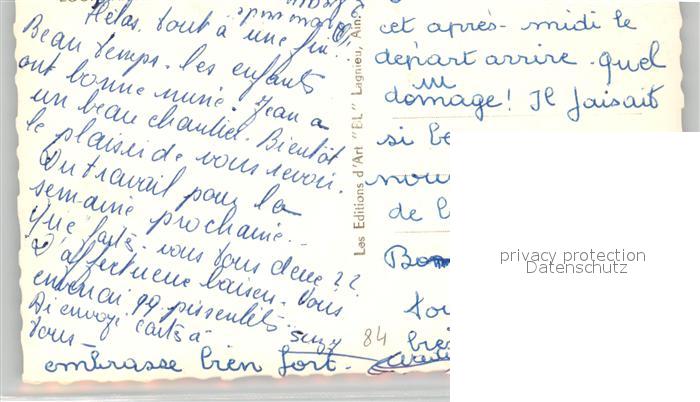 Hélas, tout a une fin!
Beau temps. les enfants
ont bonne mine. Jean a
un beau chantier. Bientôt
le plaisir de vous revoir.
Du travail pour la
semaine prochaine.
Que faites-vous tous deux??
D'affectueux baisers. Vous
pissenlits
J'ai envoyé carte à
vous_
Suzy
embrasse bien fort.
Les Editions d'Art "EL" Lagnieu, Ain.
cet après-midi le
départ arrive. quel
domage! Il faisait
si be
nou
de l
Bon
tou
84
privacy protection
Datenschutz